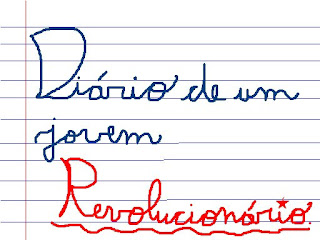 Diário de um
jovem
Revolucionário.